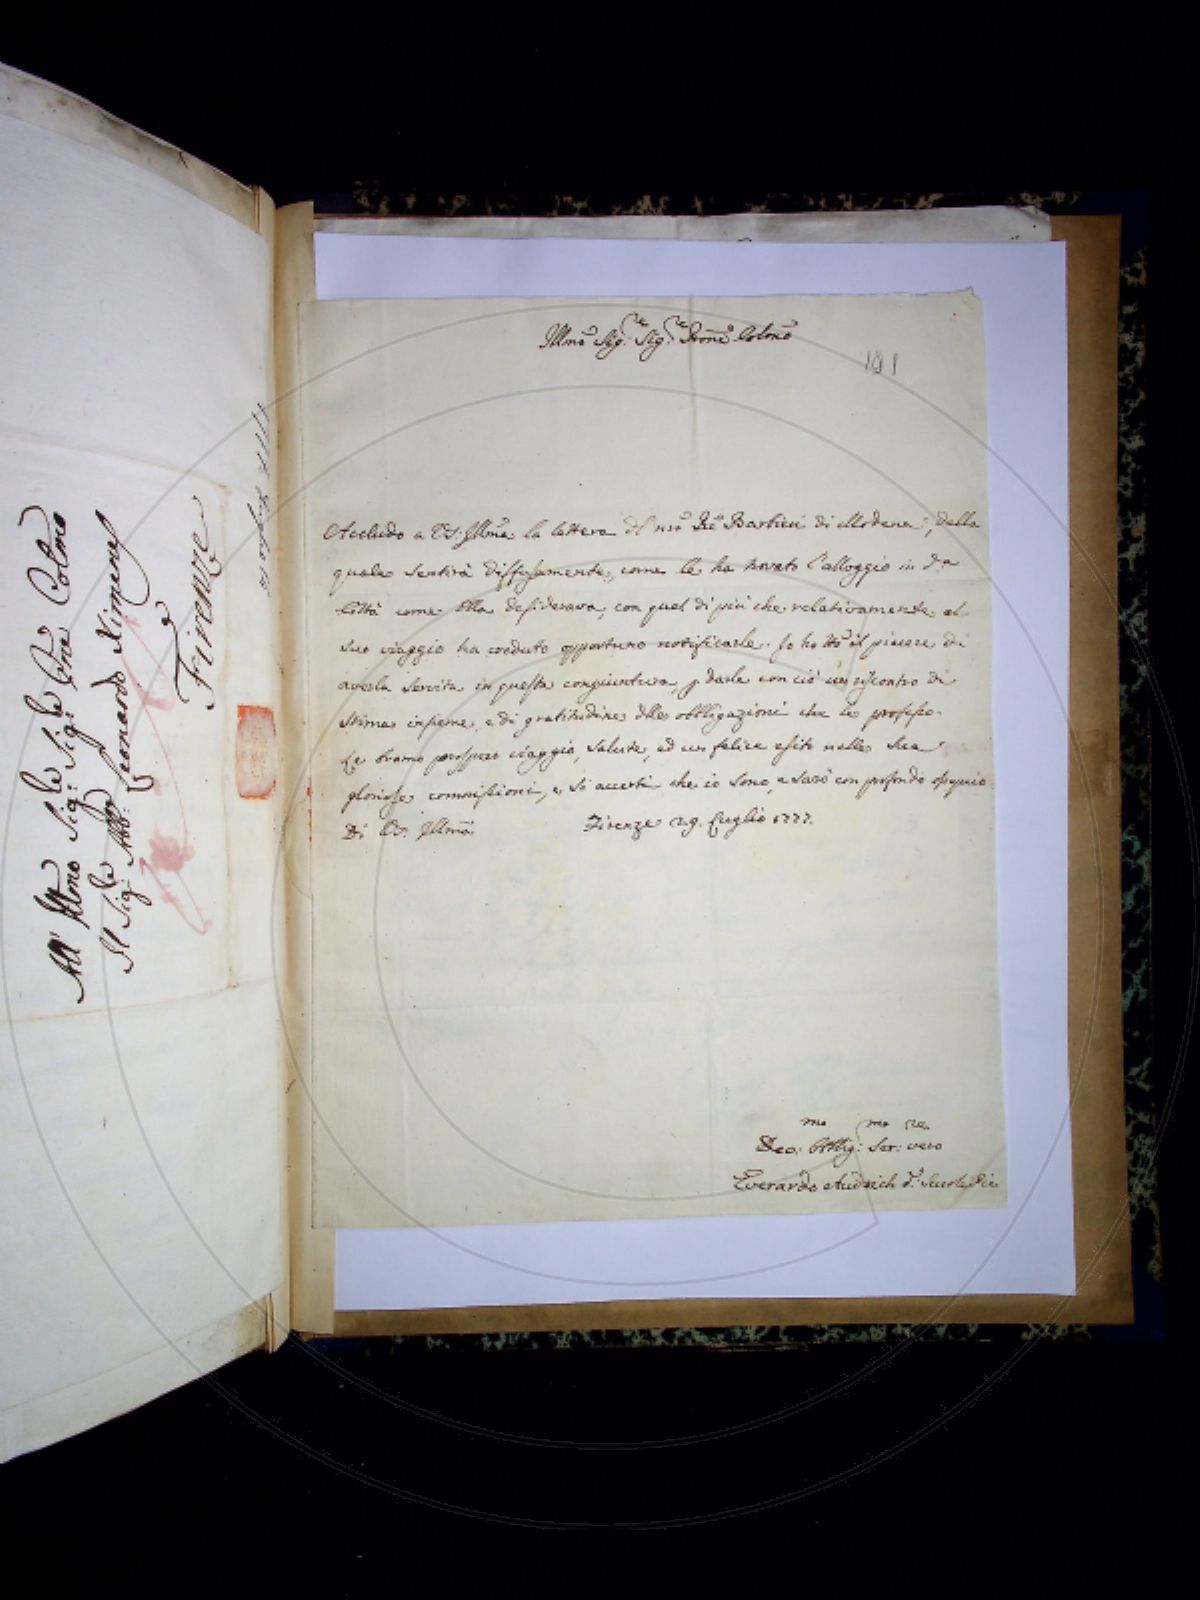 All' Illmo Sig:re Sig:re Pne Colmo
Il Sig:re Abb: Leonardo Ximenes
a
Firenze
Illmo Sig:re Sig:re Prone Colmo
191
Accludo a VS: Illma la lettera del nro Pre Barbieri di Modena, dalla
quale sentirà diffusamente, come le ha trovato l'alloggio in da
Città come Ella desiderava, con quel di più che relativamente al
suo viaggio ha creduto opportuno notificarle. Io ho il piacere di
averla servita in questa congiuntura, p darle con ciò un riscontro di
stima insieme, e di gratitudine delle obbligazioni che le professo.
Le bramo prospero viaggio, salute, ed un felice esito nelle sue
gloriose commissioni, e si accerti che io sono, e sarò con profondo ossequio
Di VS. Illma Firenze 29. Luglio 1777.
Devo:mo Obblig:mo Ser:re vero
Everardo Audrich d: Scuole Pie